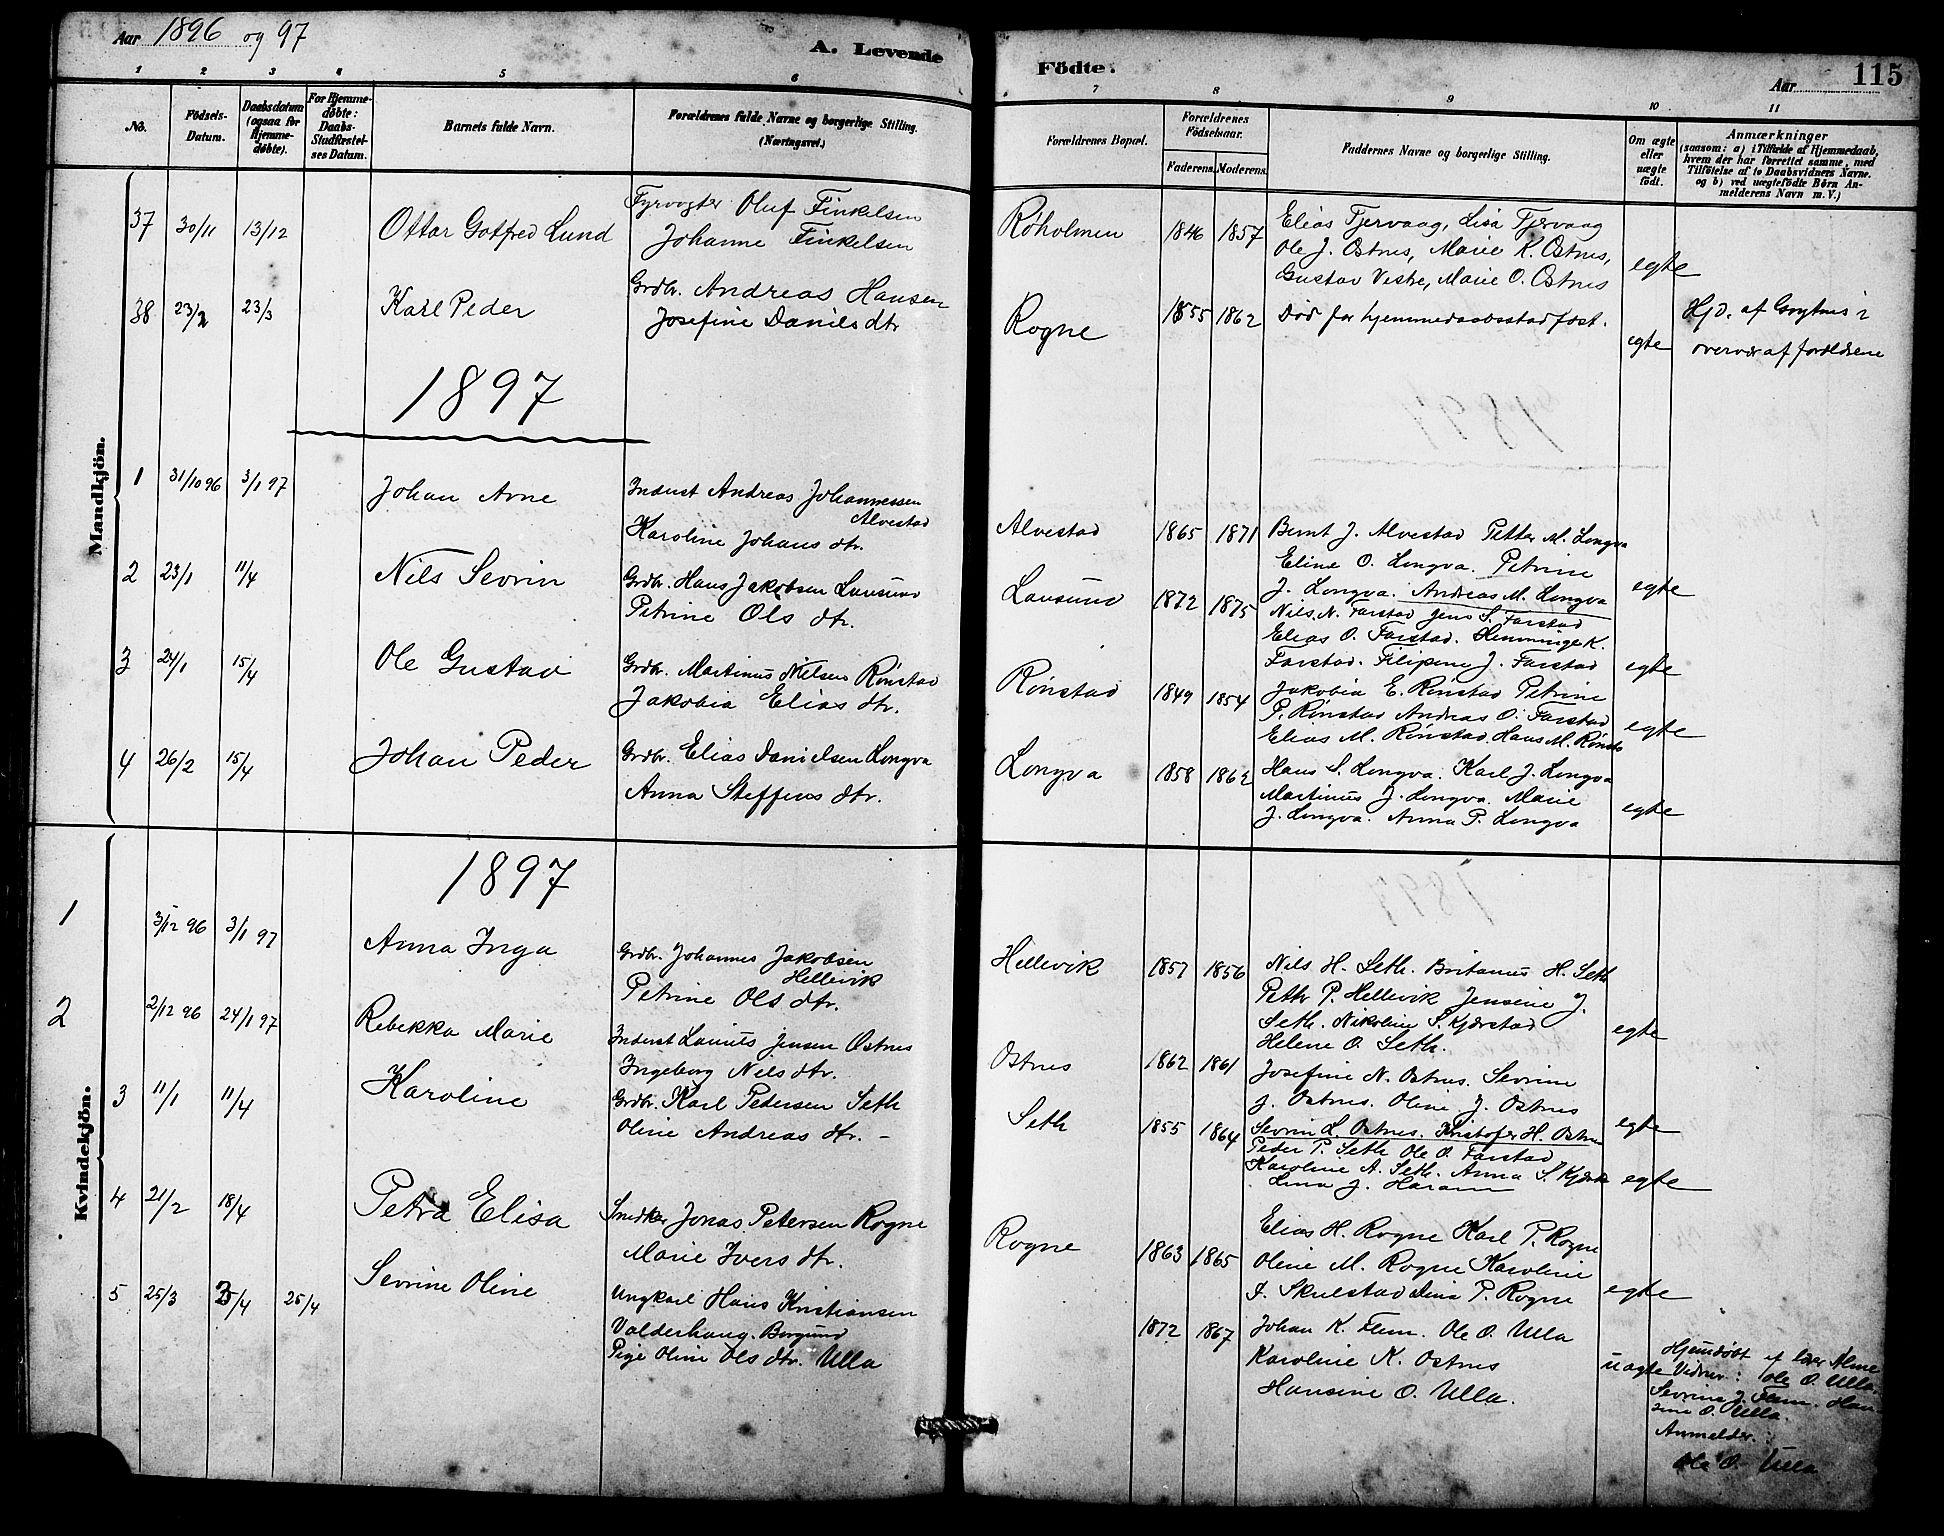 Aar 1896 og 97
A. Levende
Födte.
Aar
115
1 2 3 4 5 6 7 8 9 10 11
No.
Födsels-Datum.
Daabsdatum (ogsaa for Hjemme-døbte).
For Hjemme-døbte: Daabs-Stadfæstel-ses Datum.
Barnets fulde Navn.
Forældrenes fulde Navne og borgerlige Stilling. (Næringsvei.)
Forældrenes Bopæl.
Forældrenes Födselsaar.
Faderens. Moderens.
Faddernes Navne og borgerlige Stilling.
Om ægte eller uægte født.
Anmærkninger
(saasom: a) i Tilfælde af Hjemmedaab, hvem der har forrettet samme, med Tilføtelse af to Daabsvidners Navne. og b) ved uægtefödte Børn An-melderens Navn m. V.)
Mandkjön.
37 30/11 13/12 Ottar Gotfred Lund
Fyrvogter Oluf Finkelsen
Johanne Finkelsen
Røholmen 1846 1857
Elias Fjervaag, Lisa Fjervaag
Ole J. Østnes, Marie K. Østnes,
Gustav Vestre, Marie O. Østnes
egte
38 23/2 23/3 Karl Peder
Grdbr. Andreas Hansen
Josefine Daniels dtr
Rogne 1855 1862
Død før hjemmedaabsstadfæst.
egte
Hjd. af i
overvær af forældrene
1897
1 31/10 96 3/1 97 Johan Arne
Inderst Andreas Johannessen
Alvestad
Karoline Johans dtr.
Alvestad 1865 1871
Bernt J. Alvestad Petter M. Longva
Eline O. Longva. Petrine
J. Longva. Andreas M. Longva
egte
2 23/1 11/4 Nils Sevrin
Grdbr. Hans Jakobsen Lausund
Petrine Ols dtr.
Lausund 1872 1875
Nils N. Farstad Jens S. Farstad
Elias O. Farstad. Hemminge K.
Farstad. Filipine J. Farstad
egte
3 24/1 15/4 Ole Gustav
Grdbr. Martinus Nilsen Rønstad
Jakobia Elias dtr.
Rønstad 1849 1854
Jakobia E. Rønstad Petrine
P. Rønstad Andreas O. Farstad
Elias M. Rønstad. Hans M. Rønstad
egte
4 26/2 15/4 Johan Peder
Grdbr. Elias Danielsen Longva
Anna Steffens dtr.
Longva 1858 1862
Hans S. Longva. Karl J. Longva
Martinus J. Longva. Marie
J. Longva. Anna P. Longva
egte
Kvindekjön.
1897
1 3/12 96 3/1 97 Anna Inga
Grdbr. Johannes Jakobsen
Hellevik
Petrine Ols dtr.
Hellevik 1857 1856
Nils H. Seth. Britanus H. Seth
Petter P. Hellevik Jensine J.
Seth. Nikoline S. Kjærstad
Helene O. Seth.
egte
2 2/12 96 24/1 97 Rebekka Marie
Inderst Laurits Jensen Østnes
Ingeborg Nils dtr.
Østnes 1862 1861
Josefine N. Østnes. Sevrine
J. Østnes. Oline J. Østnes
Sevrin L. Østnes. Kristofer H. Østnes
egte
3 11/1 11/4 Karoline
Grdbr. Karl Pedersen Seth
Oline Andreas dtr. -
Seth 1855 1864
Peder P. Seth Ole O. Farstad
Karoline A. Seth. Anna S. Kjærstad
Lina J. Haram
egte
4 21/2 18/4 Petra Elisa
Snedker Jonas Petersen Rogne
Marie Ivers dtr.
Rogne 1863 1865
Elias H. Rogne Karl P. Rogne
Oline M. Rogne Karoline
I. Skulstad Lina P. Rogne
egte
5 25/3 25/4 25/4 Sevrine Oline
Ungkarl Hans Kristiansen
Valderhaug. Borgund
Pige Oline Ols dtr. Ulla
1872 1867
Johan K. Flem. Ole O. Ulla
Karoline K. Østnes
Hansine O. Ulla.
uægte
Hjemdøbt af lærer Alme
Vidner: Ole O. Ulla.
Sevrine J. Flem. Han-
sine O. Ulla.
Anmelder:
Ole O. Ulla